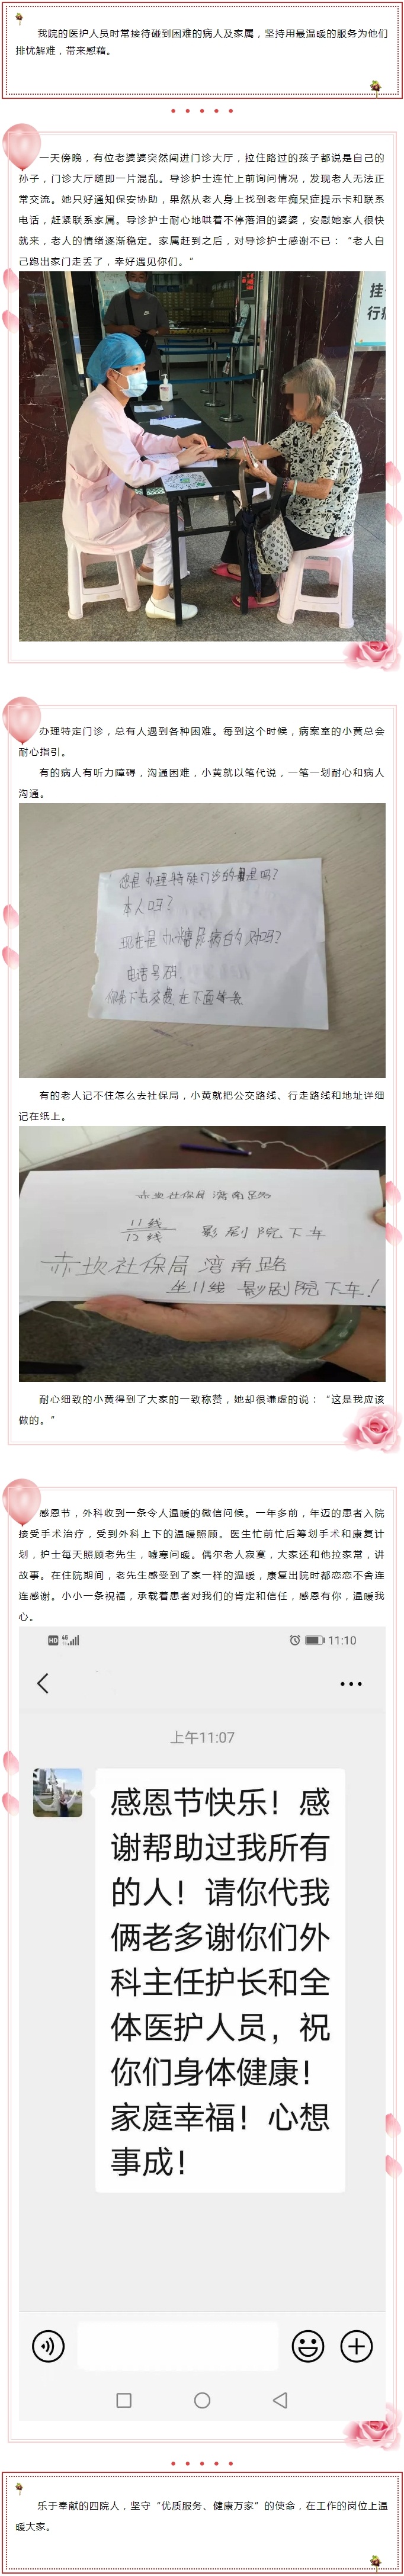 我院的医护人员时常接待碰到困难的病人及家属，坚持用最温暖的服务为他们
排忧解难，带来慰藉。
一天傍晚，有位老婆婆突然闯进门诊大厅，拉住路过的孩子都说是自己的
孙子，门诊大厅随即一片混乱。导诊护士连忙上前询问情况，发现老人无法正
常交流。她只好通知保安协助，果然从老人身上找到老年痴呆症提示卡和联系
电话，赶紧联系家属。导诊护士耐心地哄着不停落泪的婆婆，安慰她家人很快
就来，老人的情绪逐渐稳定。家属赶到之后，对导诊护士感谢不已：“老人自
己跑出家门走丢了，幸好遇见你们。”
挂
行
办理特定门诊，总有人遇到各种困难。每到这个时候，病案室的小黄总会
耐心指引。
有的病人有听力障碍，沟通困难，小黄就以笔代说，一笔一划耐心和病人
沟通。
您是办理特殊门诊的是吗？
本人吗？
现在是办糖尿病的吗？
电话号码
你先下去交费，在下面等我
有的老人记不住怎么去社保局，小黄就把公交路线、行走路线和地址详细
记在纸上。
赤坎社保局 湾南路
11线
12线 影剧院下车
赤坎社保局 湾南路
坐11线 影剧院下车！
耐心细致的小黄得到了大家的一致称赞，她却很谦虚的说：“这是我应该
做的。”
感恩节，外科收到一条令人温暖的微信问候。一年多前，年迈的患者入院
接受手术治疗，受到外科上下的温暖照顾。医生忙前忙后筹划手术和康复计
划，护士每天照顾老先生，嘘寒问暖。偶尔老人寂寞，大家还和他拉家常，讲
故事。在住院期间，老先生感受到了家一样的温暖，康复出院时都恋恋不舍连
连感谢。小小一条祝福，承载着患者对我们的肯定和信任，感恩有你，温暖我
心。
HD 4G 11:10
上午11:07
感恩节快乐！感
谢帮助过我所有
的人！请你代我
俩老多谢你们外
科主任护长和全
体医护人员，祝
你们身体健康！
家庭幸福！心想
事成！
乐于奉献的四院人，坚守“优质服务、健康万家”的使命，在工作的岗位上温
暖大家。